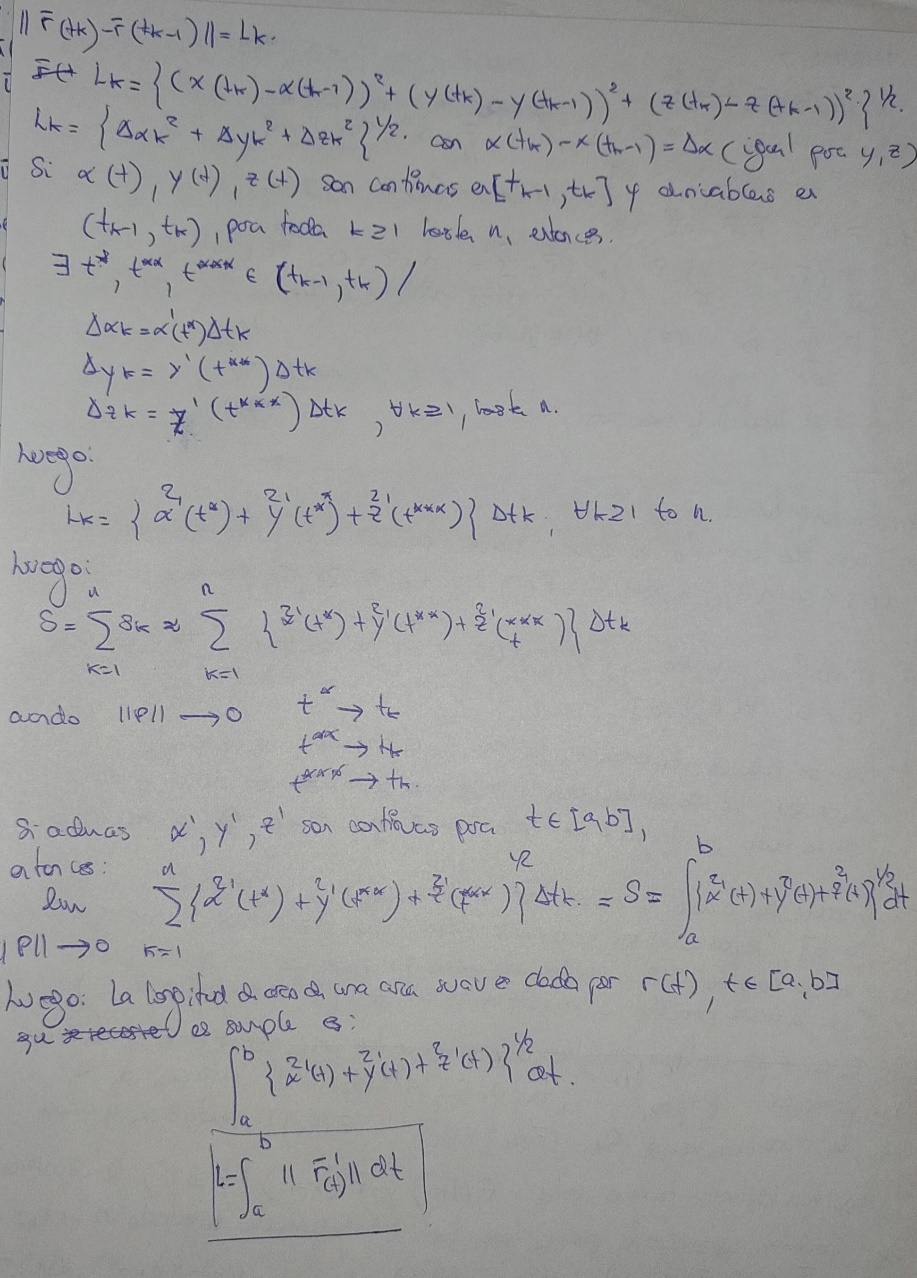 || r̄(tk)-r̄(tk-1) || = Lk.
Lk = {(x(tk)-x(tk-1))² + (y(tk)-y(tk-1))² + (z(tk)-z(tk-1))²}^1/2.
Lk = {Δxk² + Δyk² + Δzk²}^1/2. con x(tk)-x(tk-1) = Δx (igual para y, z)
Si x(t), y(t), z(t) son continuas en [tk-1, tk] y derivables en
(tk-1, tk), para todo k≥1 hasta n, entonces.
∃ t*, t**, t*** ∈ (tk-1, tk) /
Δxk = x'(t*)Δtk
Δyk = y'(t**)Δtk
Δzk = z'(t***)Δtk, ∀k≥1, hasta n.
Luego:
Lk = {x²'(t*) + y²'(t**) + z²'(t***)} Δtk, ∀k≥1 to n.
Luego:
S = Σ_{k=1}^{n} Sk ≈ Σ_{k=1}^{n} {x²'(t*) + y²'(t**) + z²'(t***)} Δtk
cuando ||P|| → 0 t* → tk
t** → tk
t*** → tk.
Si además x', y', z' son continuas para t ∈ [a,b],
entonces:
lim_{||P|| → 0} Σ_{k=1}^{n} {x²'(t*) + y²'(t**) + z²'(t***)}^1/2 Δtk. = S = ∫_a^b {x²'(t) + y²'(t) + z²'(t)}^1/2 dt
Luego: La longitud de arco de una curva suave dada por r(t), t ∈ [a,b]
que es simple es:
∫_a^b {x²'(t) + y²'(t) + z²'(t)}^1/2 dt.
L = ∫_a^b || r̄'(t) || dt